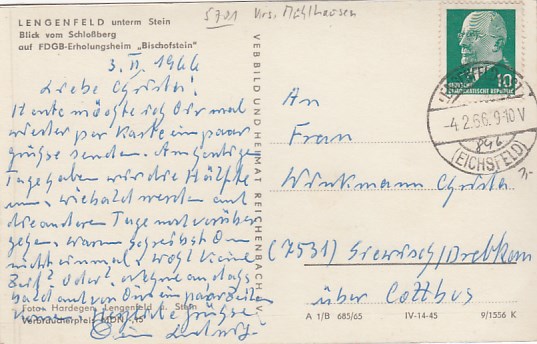 LENGENFELD unterm Stein
Blick vom Schloßberg
auf FDGB-Erholungsheim „Bischofstein"
5701 Krs. Mühlhausen
3. II. 1966
Liebe Christa!
Heute möchte ich Dir mal
wieder per Karte ein paar
Grüße senden. Am heutigen
Tage haben wir die Hälfte
um, wie bald werden auch
die anderen Tage vorüber
gehen, warum schreibst Du
nicht einmal, wohl keine
Zeit? Oder?
bald auf von Dir ein paar Zeilen
Grüße
Dein
Foto: Hardegen, Lengenfeld u. Stein
Verbraucherpreis MDN -,15
VEB BILD UND HEIMAT REICHENBACH I. V.
10
DEUTSCHE DEMOKRATISCHE REPUBLIK
-4.2.66.9-10V
(EICHSFELD)
An
Frau
Winkmann Christa
(7531) Siewisch/Drebkau
über Cottbus
3,-
A 1/B 685/65 IV-14-45 9/1556 K